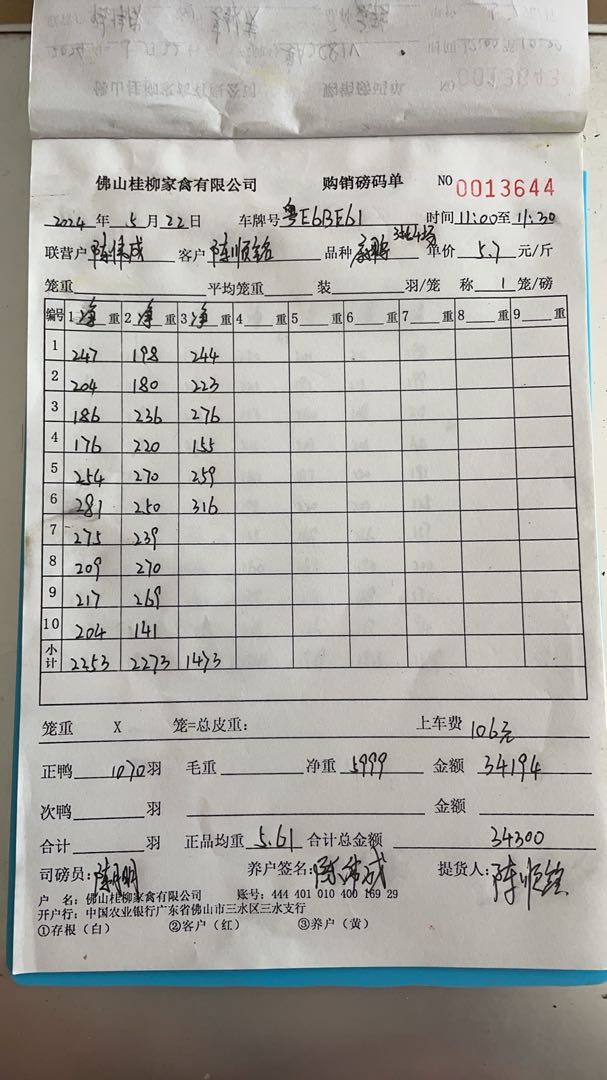 佛山桂柳家禽有限公司 购销磅码单 NO 0013644
2024年5月22日 车牌号 粤E6BE61 时间 11:00至11:30
联营户 陈伟成 客户 陈顺铭 品种 单价 5.7 元/斤
笼重 平均笼重 装 羽/笼 称 1 笼/磅
编号 1净重 2净重 3净重 4重 5重 6重 7重 8重 9重
1 247 198 244
2 204 180 223
3 186 236 276
4 176 220 155
5 254 270 259
6 281 250 316
7 275 239
8 209 270
9 217 269
10 204 141
小计 2253 2273 1473
笼重 X 笼=总皮重: 上车费 106元
正鸭 1070羽 毛重 净重 5999 金额 34194
次鸭 羽 金额
合计 羽 正品均重 5.61 合计总金额 34300
司磅员: 养户签名: 陈伟成 提货人: 陈顺铭
户 名: 佛山桂柳家禽有限公司 账号: 444 401 010 400 169 29
开户行: 中国农业银行广东省佛山市三水区三水支行
①存根（白） ②客户（红） ③养户（黄）